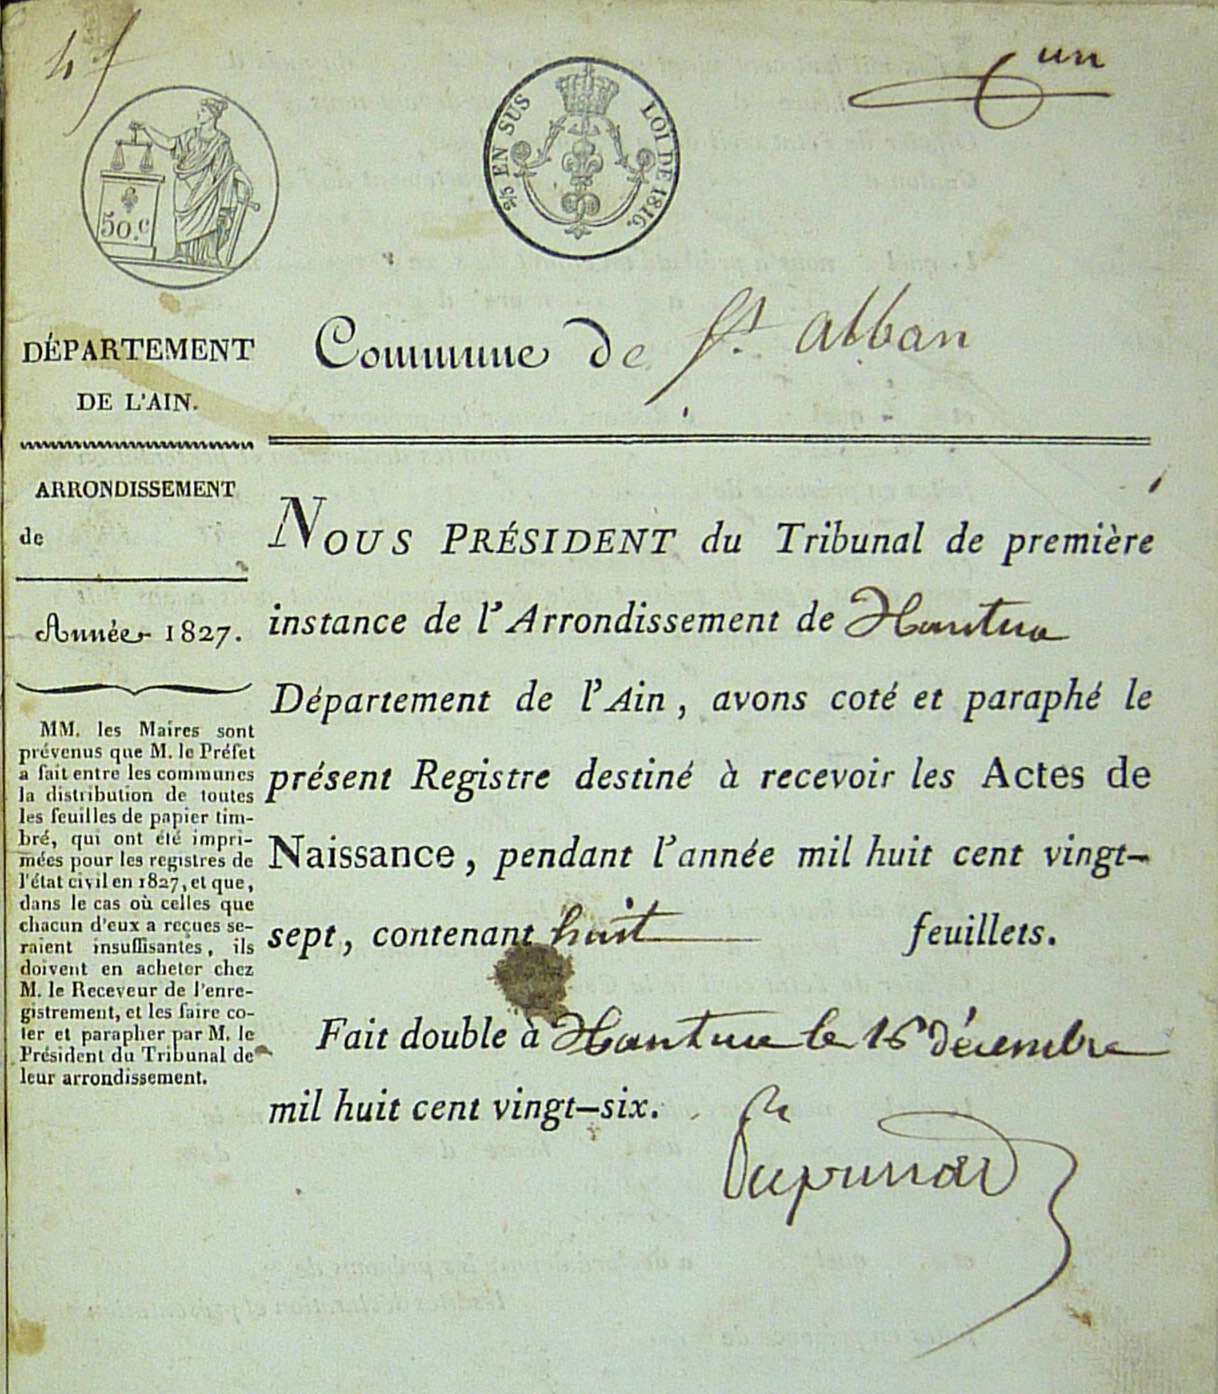 un
50.c
2/5 EN SUS
LOI DE 1816.
DÉPARTEMENT
DE L'AIN.
Commune de St. alban
ARRONDISSEMENT
de
Année 1827.
MM. les Maires sont
prévenus que M. le Préfet
a fait entre les communes
la distribution de toutes
les feuilles de papier tim-
bré, qui ont été impri-
mées pour les registres de
l'état civil en 1827, et que,
dans le cas où celles que
chacun d'eux a reçues se-
raient insuffisantes, ils
doivent en acheter chez
M. le Receveur de l'enre-
gistrement, et les faire co-
ter et parapher par M. le
Président du Tribunal de
leur arrondissement.
NOUS PRÉSIDENT du Tribunal de première
instance de l'Arrondissement de Nantua
Département de l'Ain, avons coté et paraphé le
présent Registre destiné à recevoir les Actes de
Naissance, pendant l'année mil huit cent vingt-
sept, contenant huit feuillets.
Fait double à Nantua le 16 décembre
mil huit cent vingt-six.